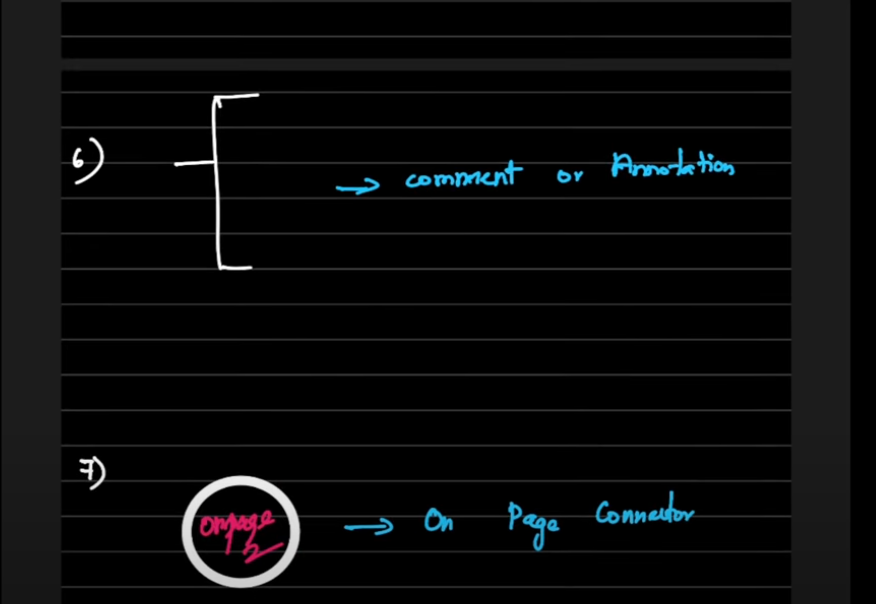 6) → comment or Annotation
7)
onpage
2 → On Page Connector